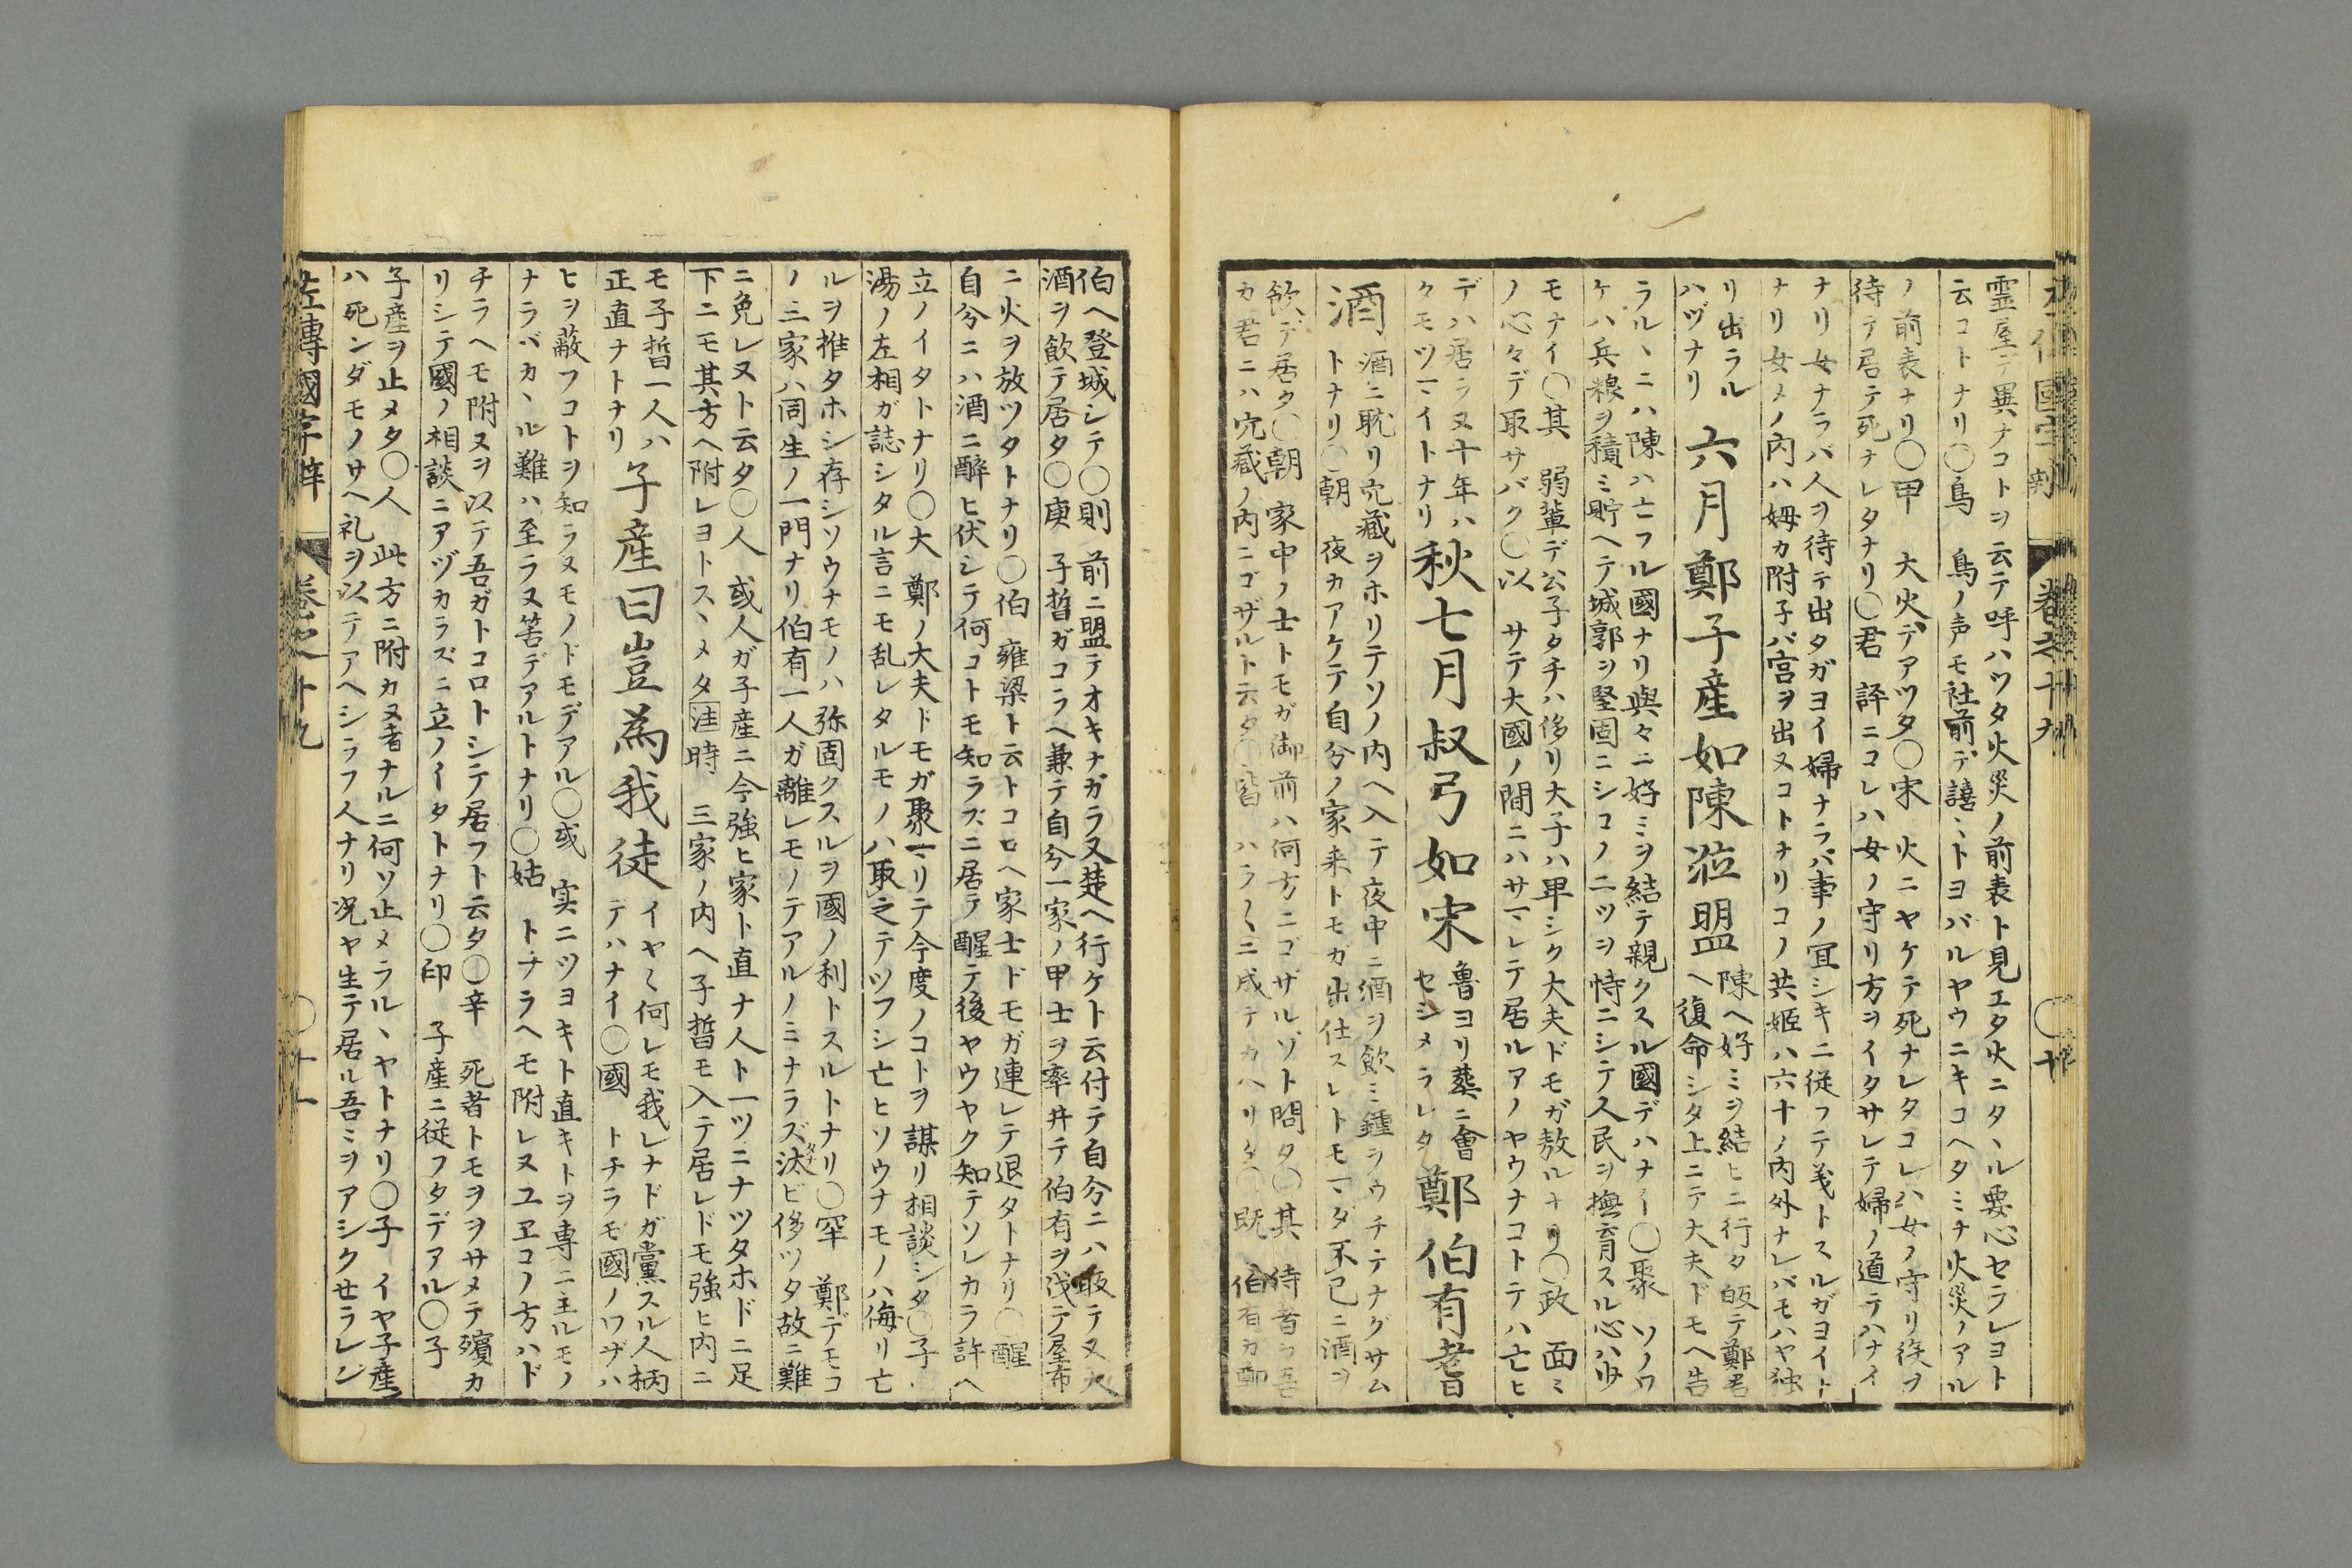 左傳國字辯 巻之十九 〇十
霊屋デ異ナコトヲ云テ呼ハツタ火災ノ前表ト見エタ火ニタヽル要心セラレヨト
云コトナリ〇鳥 鳥ノ声モ社前デ譆〻トヨバルヤウニキコヘタミナ火災ノアル
ノ前表ナリ〇甲 大火デアツタ〇宋 火ニヤケテ死ナレタコレハ女ノ守リ役ヲ
待テ居テ死ナレタナリ〇君 評ニコレハ女ノ守リ方ヲイタサレテ婦ノ道テハナイ
ナリ女ナラバ人ヲ待テ出タガヨイ婦ナラバ事ノ冝シキニ従フテ義トスルガヨイト
ナリ女メノ内ハ姆カ附子バ宮ヲ出ヌコトナリコノ共姫ハ六十ノ内外ナレバモハヤ独
リ出ラル
ハヅナリ
六月鄭子産如陳涖盟
陳ヘ好ミヲ結ヒニ行タ皈テ鄭君
ヘ復命シタ上ニテ大夫ドモヘ告
ラルヽニハ陳ハ亡フル國ナリ與々ニ好ミヲ結テ親クスル國デハナイ〇聚 ソノワ
ケハ兵粮ヲ積ミ貯ヘテ城郭ヲ堅固ニシコノ二ツヲ恃ニシテ人民ヲ撫育スル心ハ少
モナイ〇其 弱輩デ公子タチハ侈リ大子ハ卑シク大夫ドモガ敖ルナリ〇政 面ミ
ノ心々デ取サバク〇以 サテ大國ノ間ニハサマレテ居ルアノヤウナコトテハ亡ヒ
デハ居ラヌ十年ハ
クモツマイトナリ
秋七月叔弓如宋
魯ヨリ葬ニ會
セシメラレタ
鄭伯有耆
酒
酒ニ耽リ穴藏ヲホリテソノ内ヘ入テ夜中ニ酒ヲ飲ミ鍾ヲウチテナグサム
トナリ〇朝 夜カアケテ自分ノ家来トモカ出仕スレトモマダ不已ニ酒ヲ
飲デ居タ〇朝 家中ノ士トモガ御前ハ何方ニゴザルゾト問タ〇其 侍者ラ吾
カ君ニハ穴藏ノ内ニゴザルト云タ〇皆 ハラ〱ニ成テカハリタ〇既 伯有カ鄭
伯ヘ登城シテ〇則 前ニ盟テオキナガラ又楚ヘ行ケト云付テ自分ニハ皈テ又
酒ヲ飲テ居タ〇庚 子晳ガコラヘ兼テ自分一家ノ甲士ヲ率井テ伯有ヲ伐テ屋布
ニ火ヲ放ツタトナリ〇伯 雍梁ト云トコロヘ家士ドモガ連レテ退タトナリ〇醒
自分ニハ酒ニ醉ヒ伏シテ何コトモ知ラズニ居テ醒テ後ヤウヤク知テソレカラ許ヘ
立ノイタトナリ〇大 鄭ノ大夫ドモガ聚マリテ今度ノコトヲ謀リ相談シタ〇子
湯ノ左相ガ誌シタル言ニモ乱レタルモノハ取之テツフシ亡ヒソウナモノハ侮リ亡
ルヲ推タホシ存シソウナモノハ弥固クスルヲ國ノ利トスルトナリ〇罕 鄭デモコ
ノ三家ハ同生ノ一門ナリ伯有一人ガ離レモノテアルノミナラズ汰ビ侈ツタ故ニ難
ニ免レヌト云タ〇人 或人ガ子産ニ今強ヒ家ト直ナ人ト一ツニナツタホドニ足
下ニモ其方ヘ附レヨトスヽメタ 注時 三家ノ内ヘ子晳モ入テ居レドモ強ヒ内ニ
モ子晳一人ハ
正直ナトナリ
子産曰豈為我徒
イヤミ何レモ我レナドガ黨スル人柄
テハナイ〇國 トチラモ國ノワザハ
ヒヲ蔽フコトヲ知ラヌモノドモデアル〇或 実ニツヨキト直キトヲ専ニ主ルモノ
ナラバカヽル難ハ至ラヌ筈デアルトナリ〇姑 トチラヘモ附レヌユヱコノ方ハド
チラヘモ附ヌヲ以テ吾ガトコロトシテ居フト云タ〇辛 死者トモヲヲサメテ殯カ
リシテ國ノ相談ニアヅカラズニ立ノイタトナリ〇印 子産ニ従フタデアル〇子
子産ヲ止メタ〇人 此方ニ附カヌ者ナルニ何ソ止メラルヽヤトナリ〇子 イヤ子産
ハ死ンダモノサヘ礼ヲ以テアヘシラフ人ナリ况ヤ生テ居ル吾ミヲアシクセラレン
左傳國字辯 巻之十九 〇十一